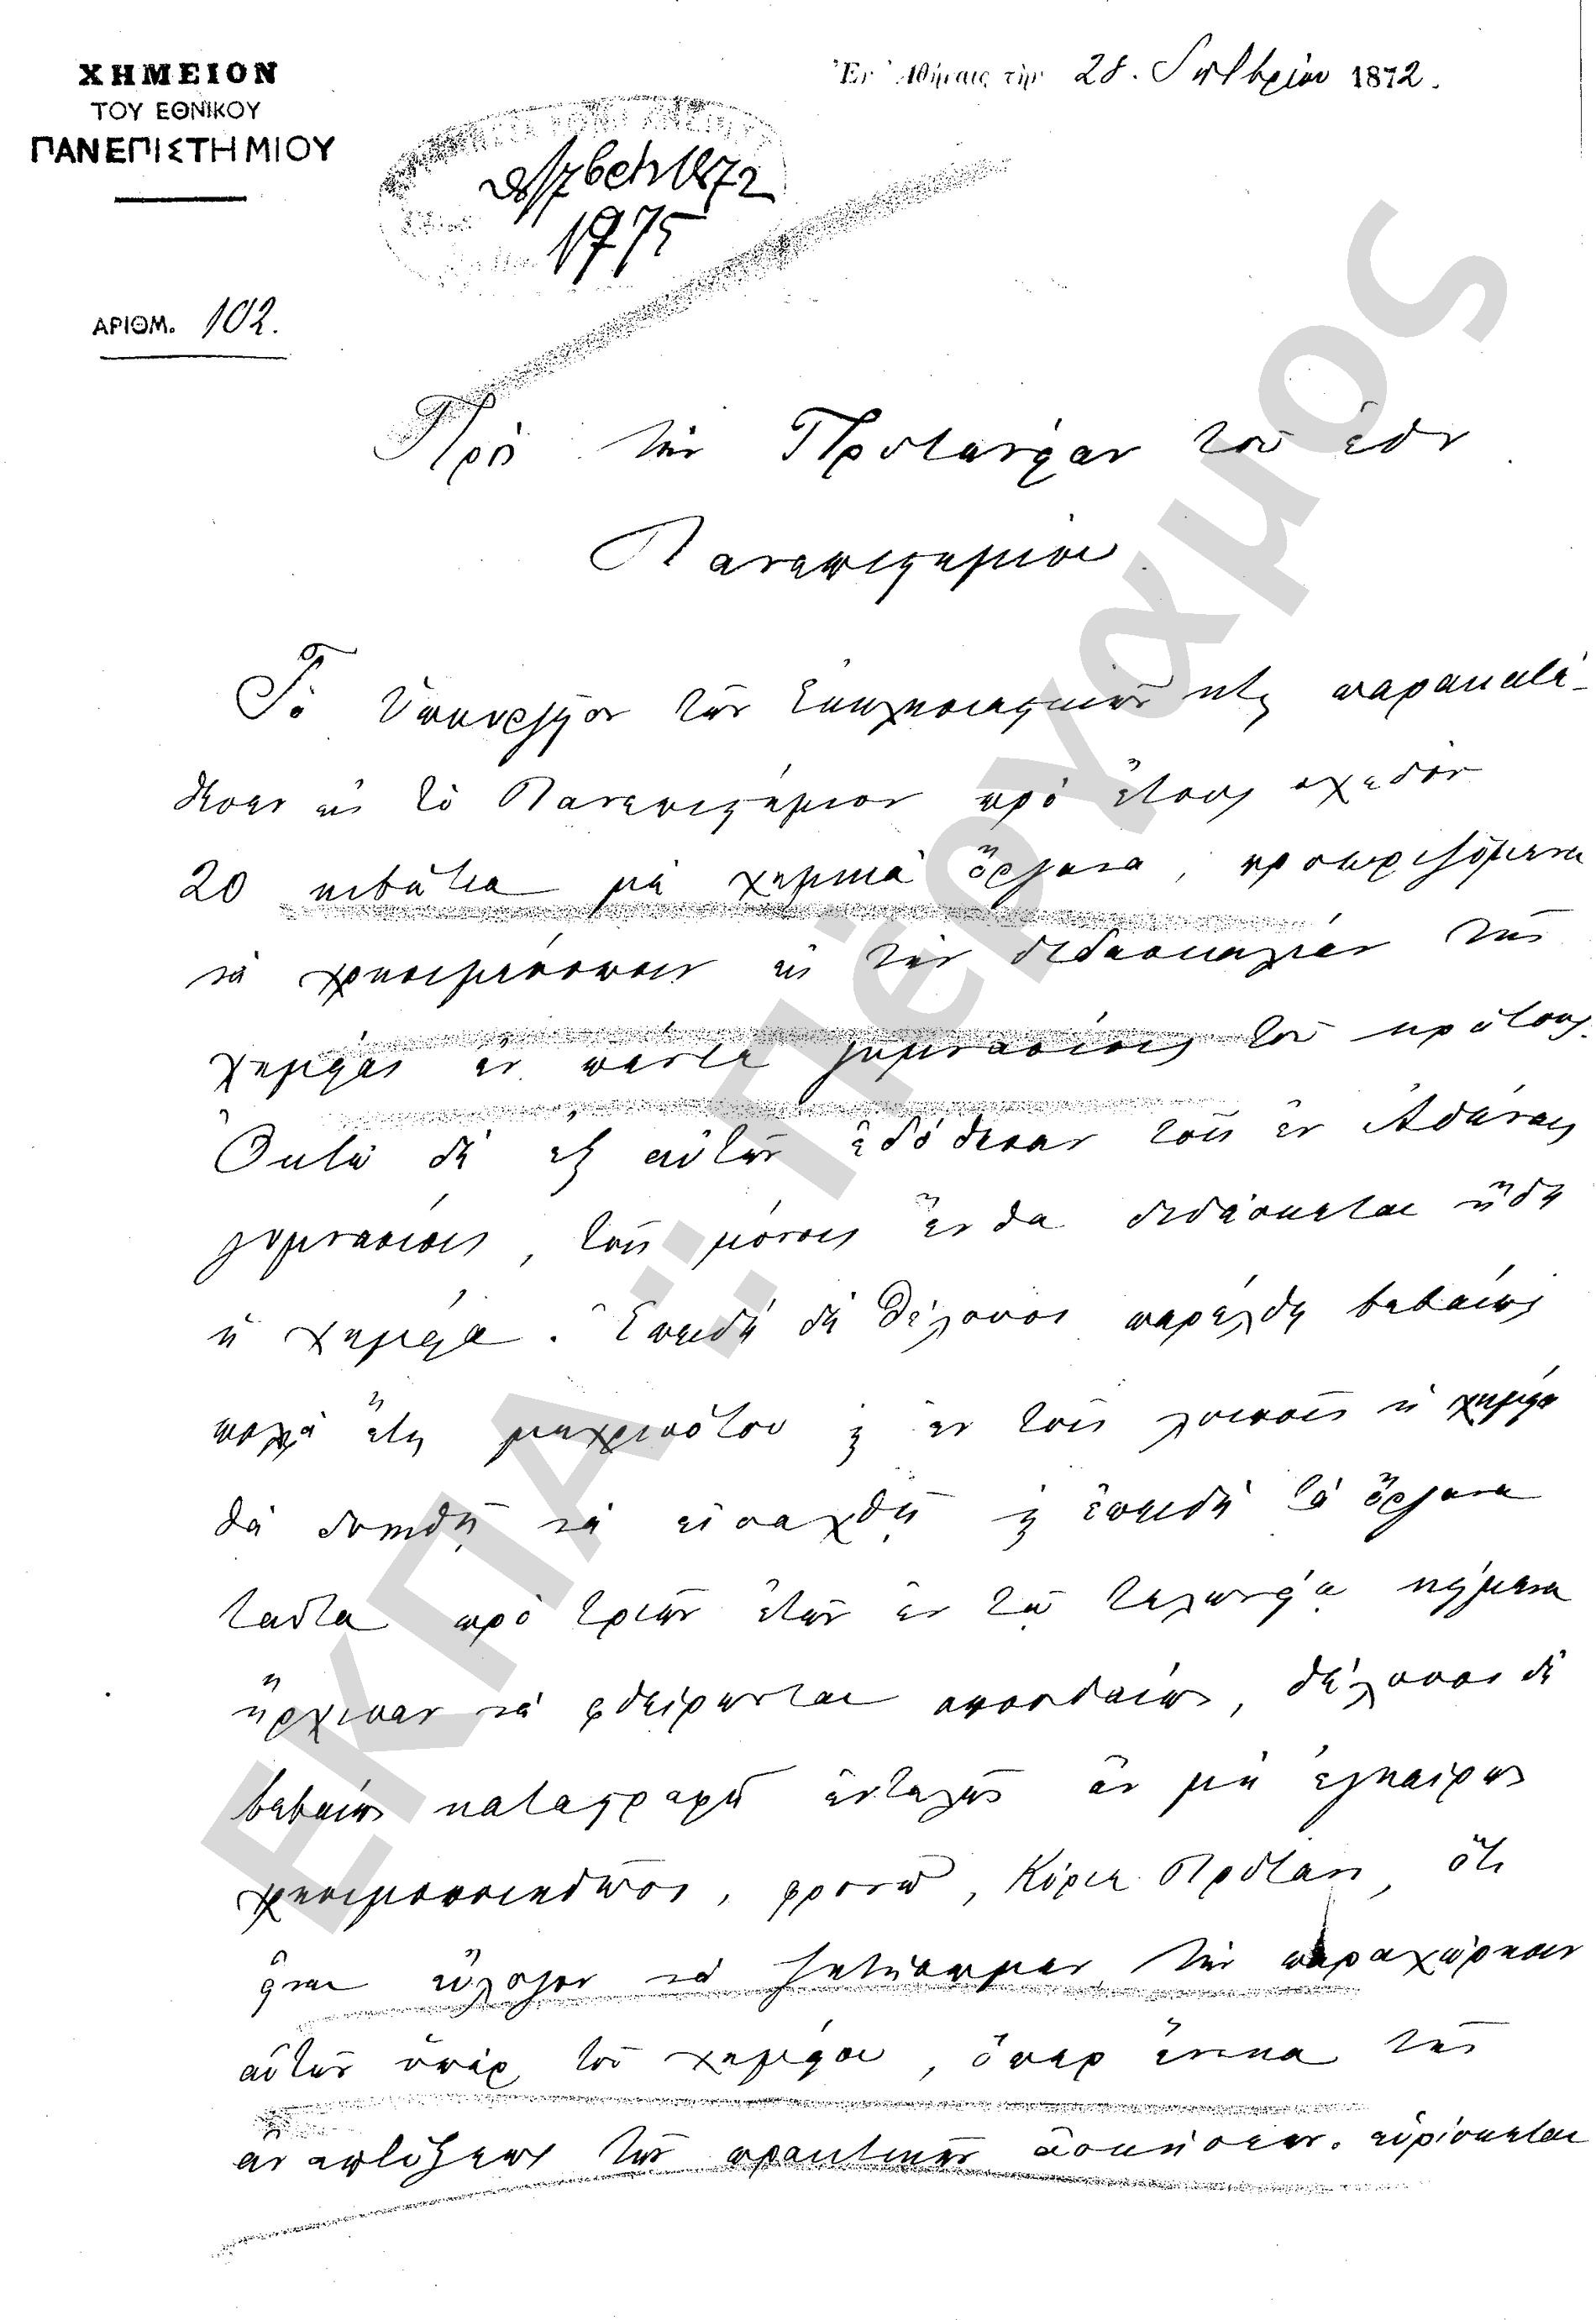 ΧΗΜΕΙΟΝ
ΤΟΥ ΕΘΝΙΚΟΥ
ΠΑΝΕΠΙΣΤΗΜΙΟΥ
Ἐν Ἀθήναις τὴν 28. Σεπτβρίου 1872.
1872
1975
ΑΡΙΘΜ. 102.
Πρὸς τὴν Πρυτανείαν τοῦ ἐθν
Πανεπιστημίου
Τὸ Ὑπουργεῖον τῶν Ἐκκλησιαστικῶν κτλ παρακατέ-
θεσεν εἰς τὸ Πανεπιστήμιον πρὸ ἔτους σχεδὸν
20 κιβώτια μὲ χημικὰ ὄργανα, προωρισμένα
νὰ χρησιμεύσωσιν εἰς τὴν διδασκαλίαν τῆς
χημείας ἐν πᾶσι γυμνασίοις τοῦ κράτους.
Ὀκτὼ δὲ ἐξ αὐτῶν ἐδόθησαν τοῖς ἐν Ἀθήναις
γυμνασίοις, τοῖς μόνοις ἔνθα διδάσκεται ἤδη
ἡ χημεία. Ἐπειδὴ δὲ θέλουσι παρέλθῃ βεβαίως
πολλὰ ἔτη μεχριςότου ϗ ἐν τοῖς λοιποῖς ἡ χημεία
θὰ δυνηθῇ νὰ εἰσαχθῇ ϗ ἐπειδὴ τὰ ὄργανα
ταῦτα πρὸ τριῶν ἐτῶν ἐν τῷ τελωνείῳ κείμενα
ἤρχισαν νὰ φθείρωνται σπουδαίως, θέλουσι δὲ
βεβαίως καταστραφῆ ἐντελῶς ἂν μὴ ἐγκαίρως
χρησιμοποιηθῶσι, φρονῶ, Κύριε Πρύτανι, ὅτι
εἶναι εὔλογον νὰ ζητήσωμεν τὴν παραχώρησιν
αὐτῶν ὑπὲρ τοῦ χημείου, ὅπερ ἕνεκα τῆς
ἀναπτύξεως τῶν πρακτικῶν ἀσκήσεων εὑρίσκεται
ΕΚΠΑ: Πέργαμος